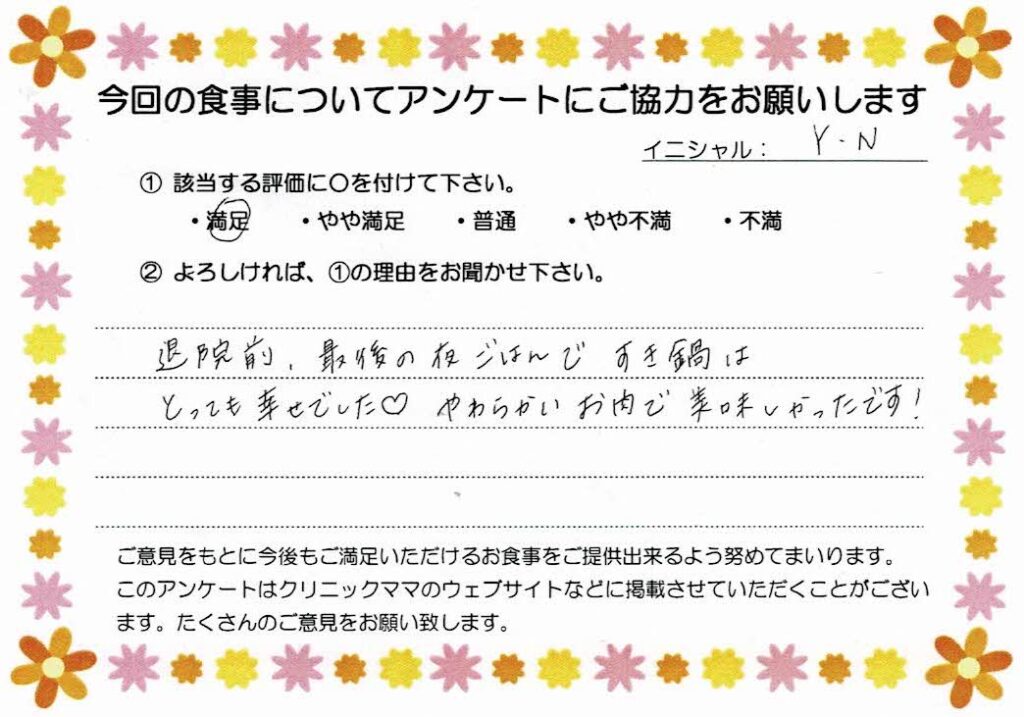 今回の食事についてアンケートにご協力をお願いします
イニシャル： Y・N
① 該当する評価に〇を付けて下さい。
・満足 ・やや満足 ・普通 ・やや不満 ・不満
② よろしければ、①の理由をお聞かせ下さい。
退院前、最後の夜ごはんで すき鍋は
とっても幸せでした♡ やわらかいお肉で美味しかったです！
ご意見をもとに今後もご満足いただけるお食事をご提供出来るよう努めてまいります。
このアンケートはクリニックママのウェブサイトなどに掲載させていただくことがござい
ます。たくさんのご意見をお願い致します。